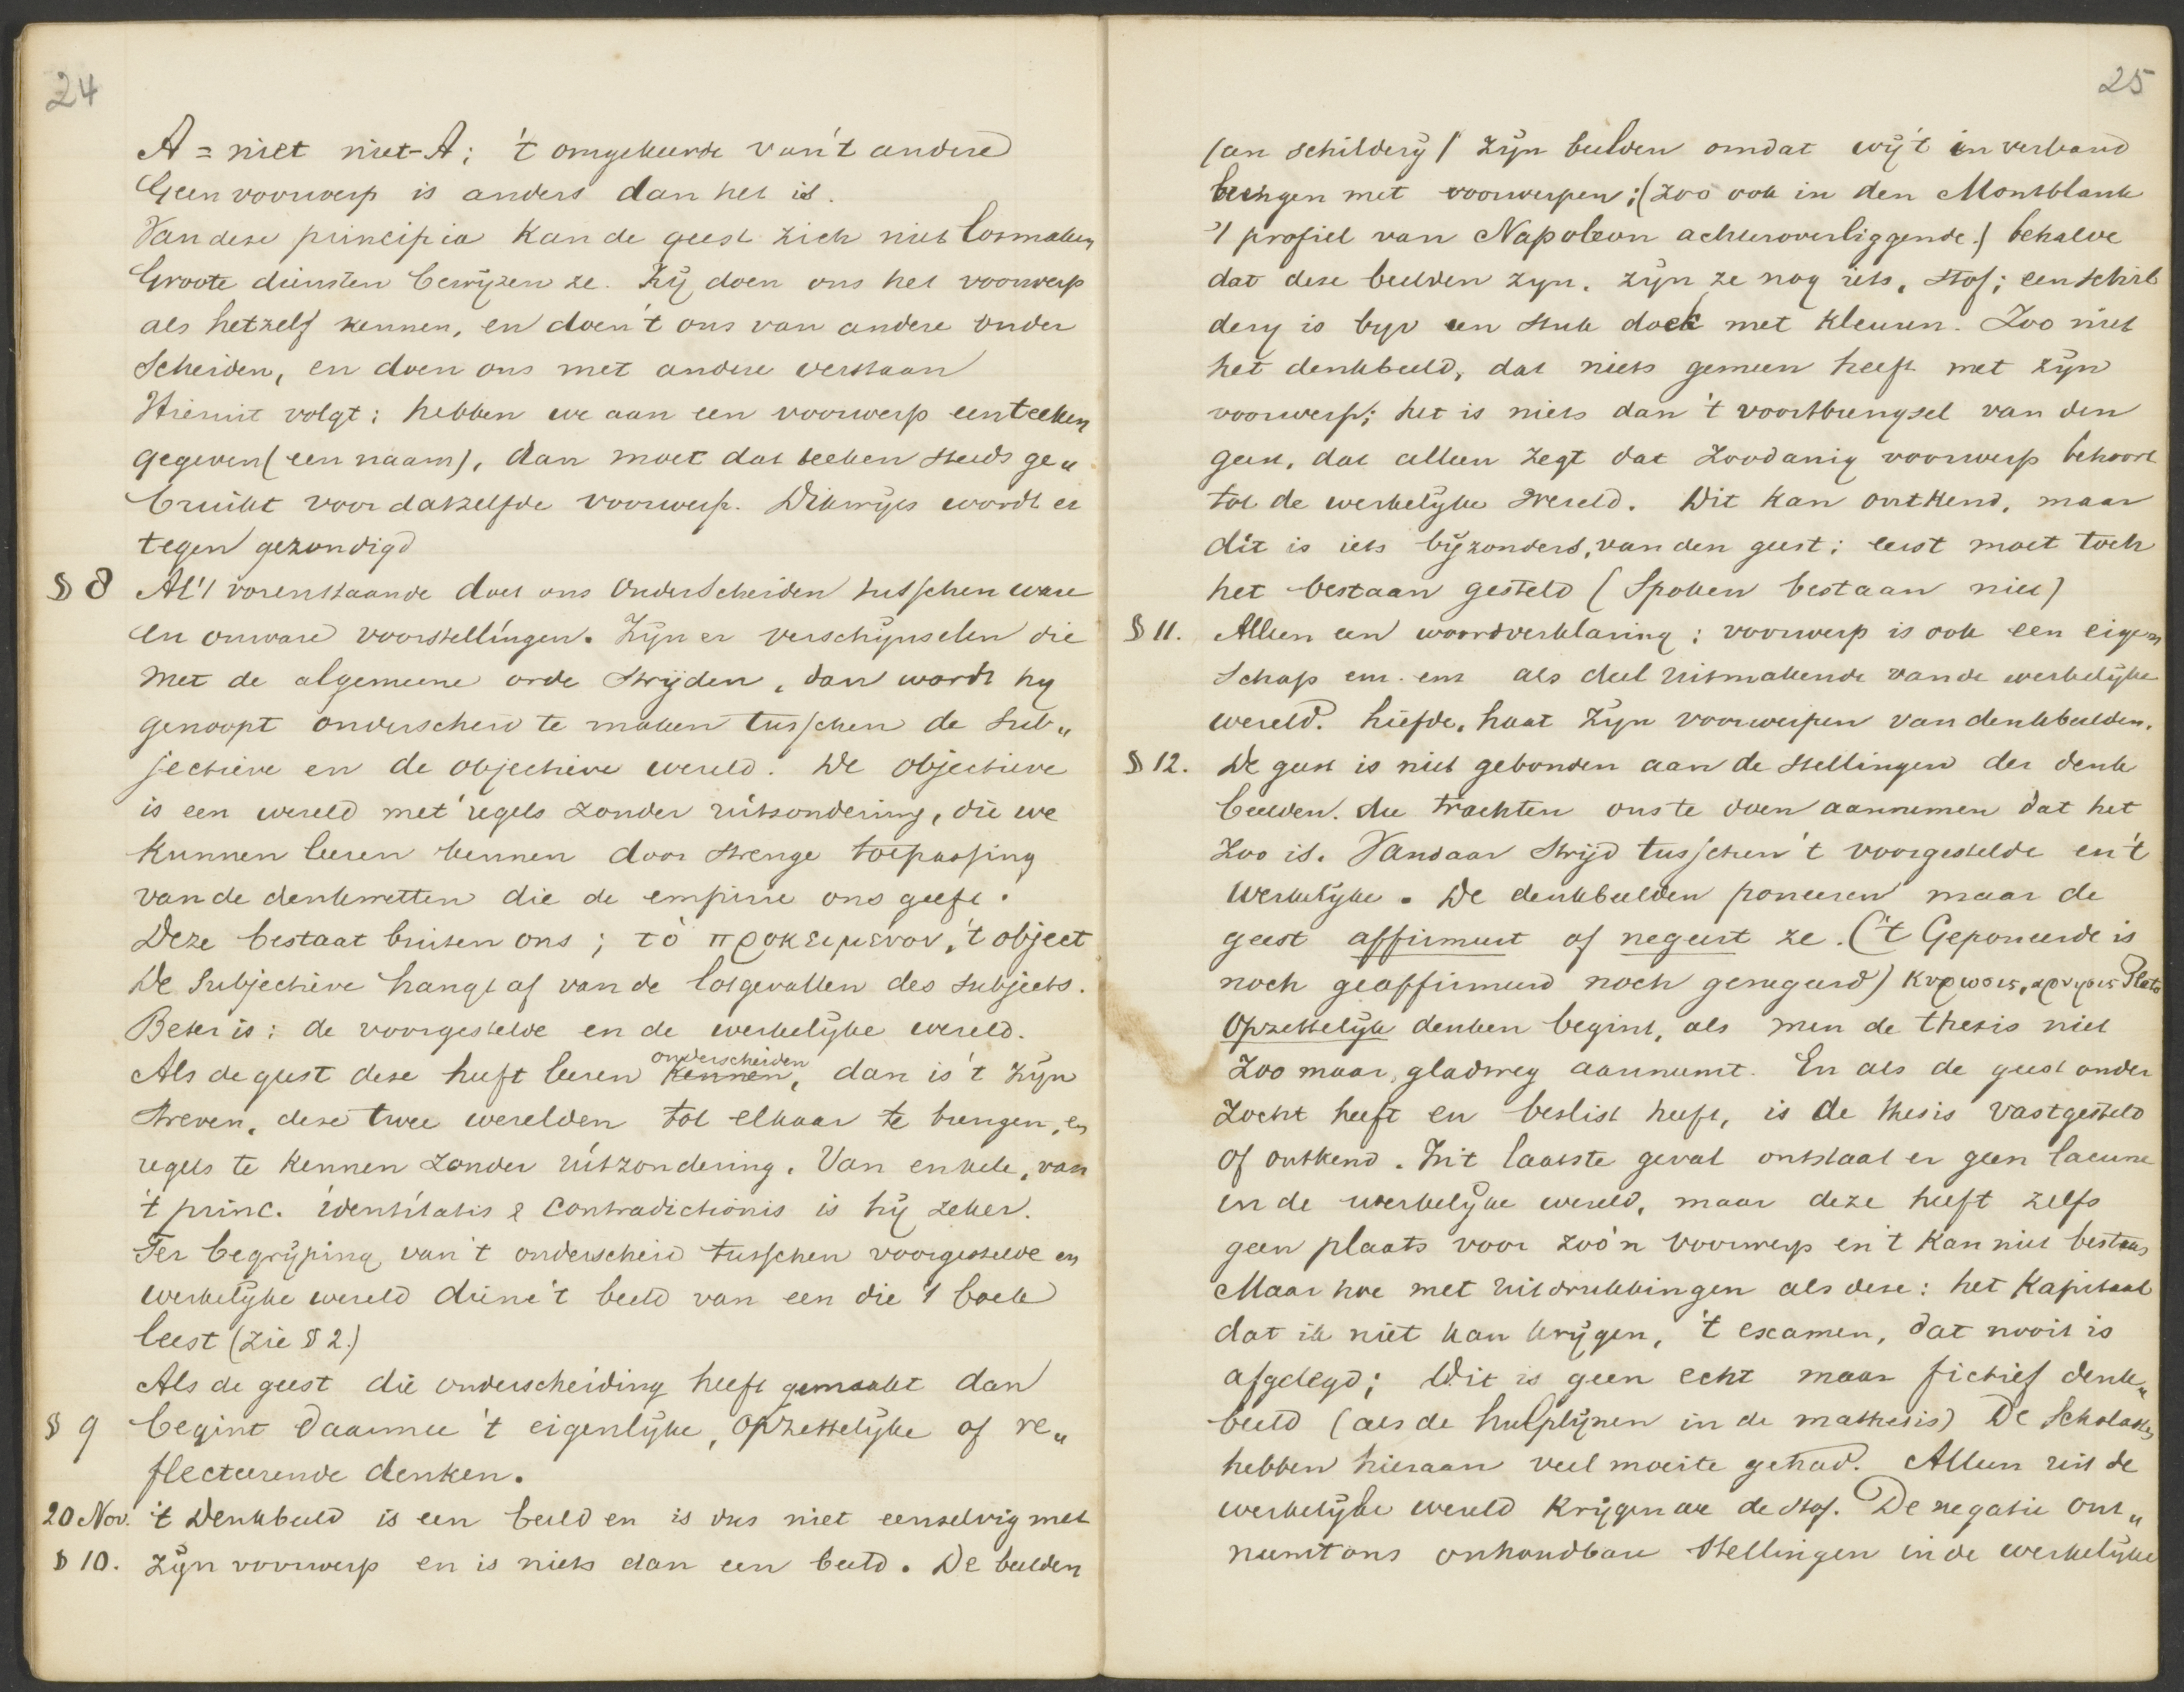 24
A = niet niet-A; 't omgekeerde van 't andere
Geen voorwerp is anders dan het is.
Van deze principia kan de geest zich niet losmaken
Groote diensten bewijzen ze. Zij doen ons het voorwerp
als hetzelf kennen, en doen 't ons van andere onder
scheiden, en doen ons met andere verstaan
Hieruit volgt: hebben we aan een voorwerp een teeken
gegeven (een naam), dan moet dat teeken steeds ge„
bruikt voor datzelfde voorwerp. Dikwijls wordt er
tegen gezondigd
§ 8 Al 't vorenstaande doet ons onderscheiden tusschen ware
en onware voorstellingen. Zijn er verschijnselen die
met de algemeene orde strijden, dan wordt hij
genoopt onderscheid te maken tusschen de sub„
jectieve en de objectieve wereld. De objectieve
is een wereld met regels zonder uitzondering, die we
kunnen leeren kennen door strenge toepassing
van de denkwetten die de empirie ons geeft.
Deze bestaat buiten ons; τὸ προκειμενον, 't object
De subjectieve hangt af van de lotgevallen des subjects.
Beter is: de voorgestelde en de werkelijke wereld.
Als de geest deze heeft leeren kennen onderscheiden, dan is 't zijn
streven, deze twee werelden tot elkaar te brengen, en
regels te kennen zonder uitzondering. Van enkele, van
't princ. identitatis & contradictionis is hij zeker.
Ter begrijping van 't onderscheid tusschen voorgestelde en
werkelijke wereld diene 't beeld van een die 't boek
leest (zie § 2.)
Als de geest die onderscheiding heeft gemaakt dan
§ 9 begint daarmee 't eigenlijke, opzettelijke of re„
flecteerende denken.
20 Nov. 't Denkbeeld is een beeld en is dus niet eenzelvig met
§ 10. zijn voorwerp en is niets dan een beeld. De beelden
25
(een schilderij) zijn beelden omdat wij 't in verband
brengen met voorwerpen; (zoo ook in den Montblank
't profiel van Napoleon achteroverliggende.) behalve
dat deze beelden zijn, zijn ze nog iets, stof; een schil
derij is bijv een stuk doek met kleuren. Zoo niet
het denkbeeld, dat niets gemeen heeft met zijn
voorwerp; het is niets dan 't voortbrengsel van den
geest, dat alleen zegt dat zoodanig voorwerp behoort
tot de werkelijke wereld. Dit kan ontkend, maar
dit is iets bijzonders, van den geest; eerst moet toch
het bestaan gesteld (Spoken bestaan niet)
§ 11. Alleen een woordverklaring: voorwerp is ook een eigen
schap enz. enz als deel uitmakende van de werkelijke
wereld. Liefde, haat zijn voorwerpen van denkbeelden.
§ 12. De geest is niet gebonden aan de stellingen der denk
beelden. die trachten ons te doen aannemen dat het
zoo is. Vandaar strijd tusschen 't voorgestelde en 't
werkelijke. De denkbeelden poneeren maar de
geest affirmeert of negeert ze. ('t Geponeerde is
noch geaffirmeerd noch genegeerd) κυρωσις, αρνησις Plato
Opzettelijk denken begint, als men de thesis niet
zoo maar, gladweg aanneemt. En als de geest onder
zocht heeft en beslist heeft, is de thesis vastgesteld
of ontkend. In 't laatste geval ontstaat er geen lacune
in de werkelijke wereld, maar deze heeft zelfs
geen plaats voor zoo'n voorwerp en 't kan niet bestaan
Maar hoe met uitdrukkingen als deze: het kapitaal
dat ik niet kan krijgen, 't examen, dat nooit is
afgelegd; Dit is geen echt maar fictief denk„
beeld (als de hulplijnen in de mathesis) De Scholastici
hebben hieraan veel moeite gehad. Alleen uit de
werkelijke wereld krijgen we de stof. De negatie ont„
neemt ons onhoudbare stellingen in de werkelijke